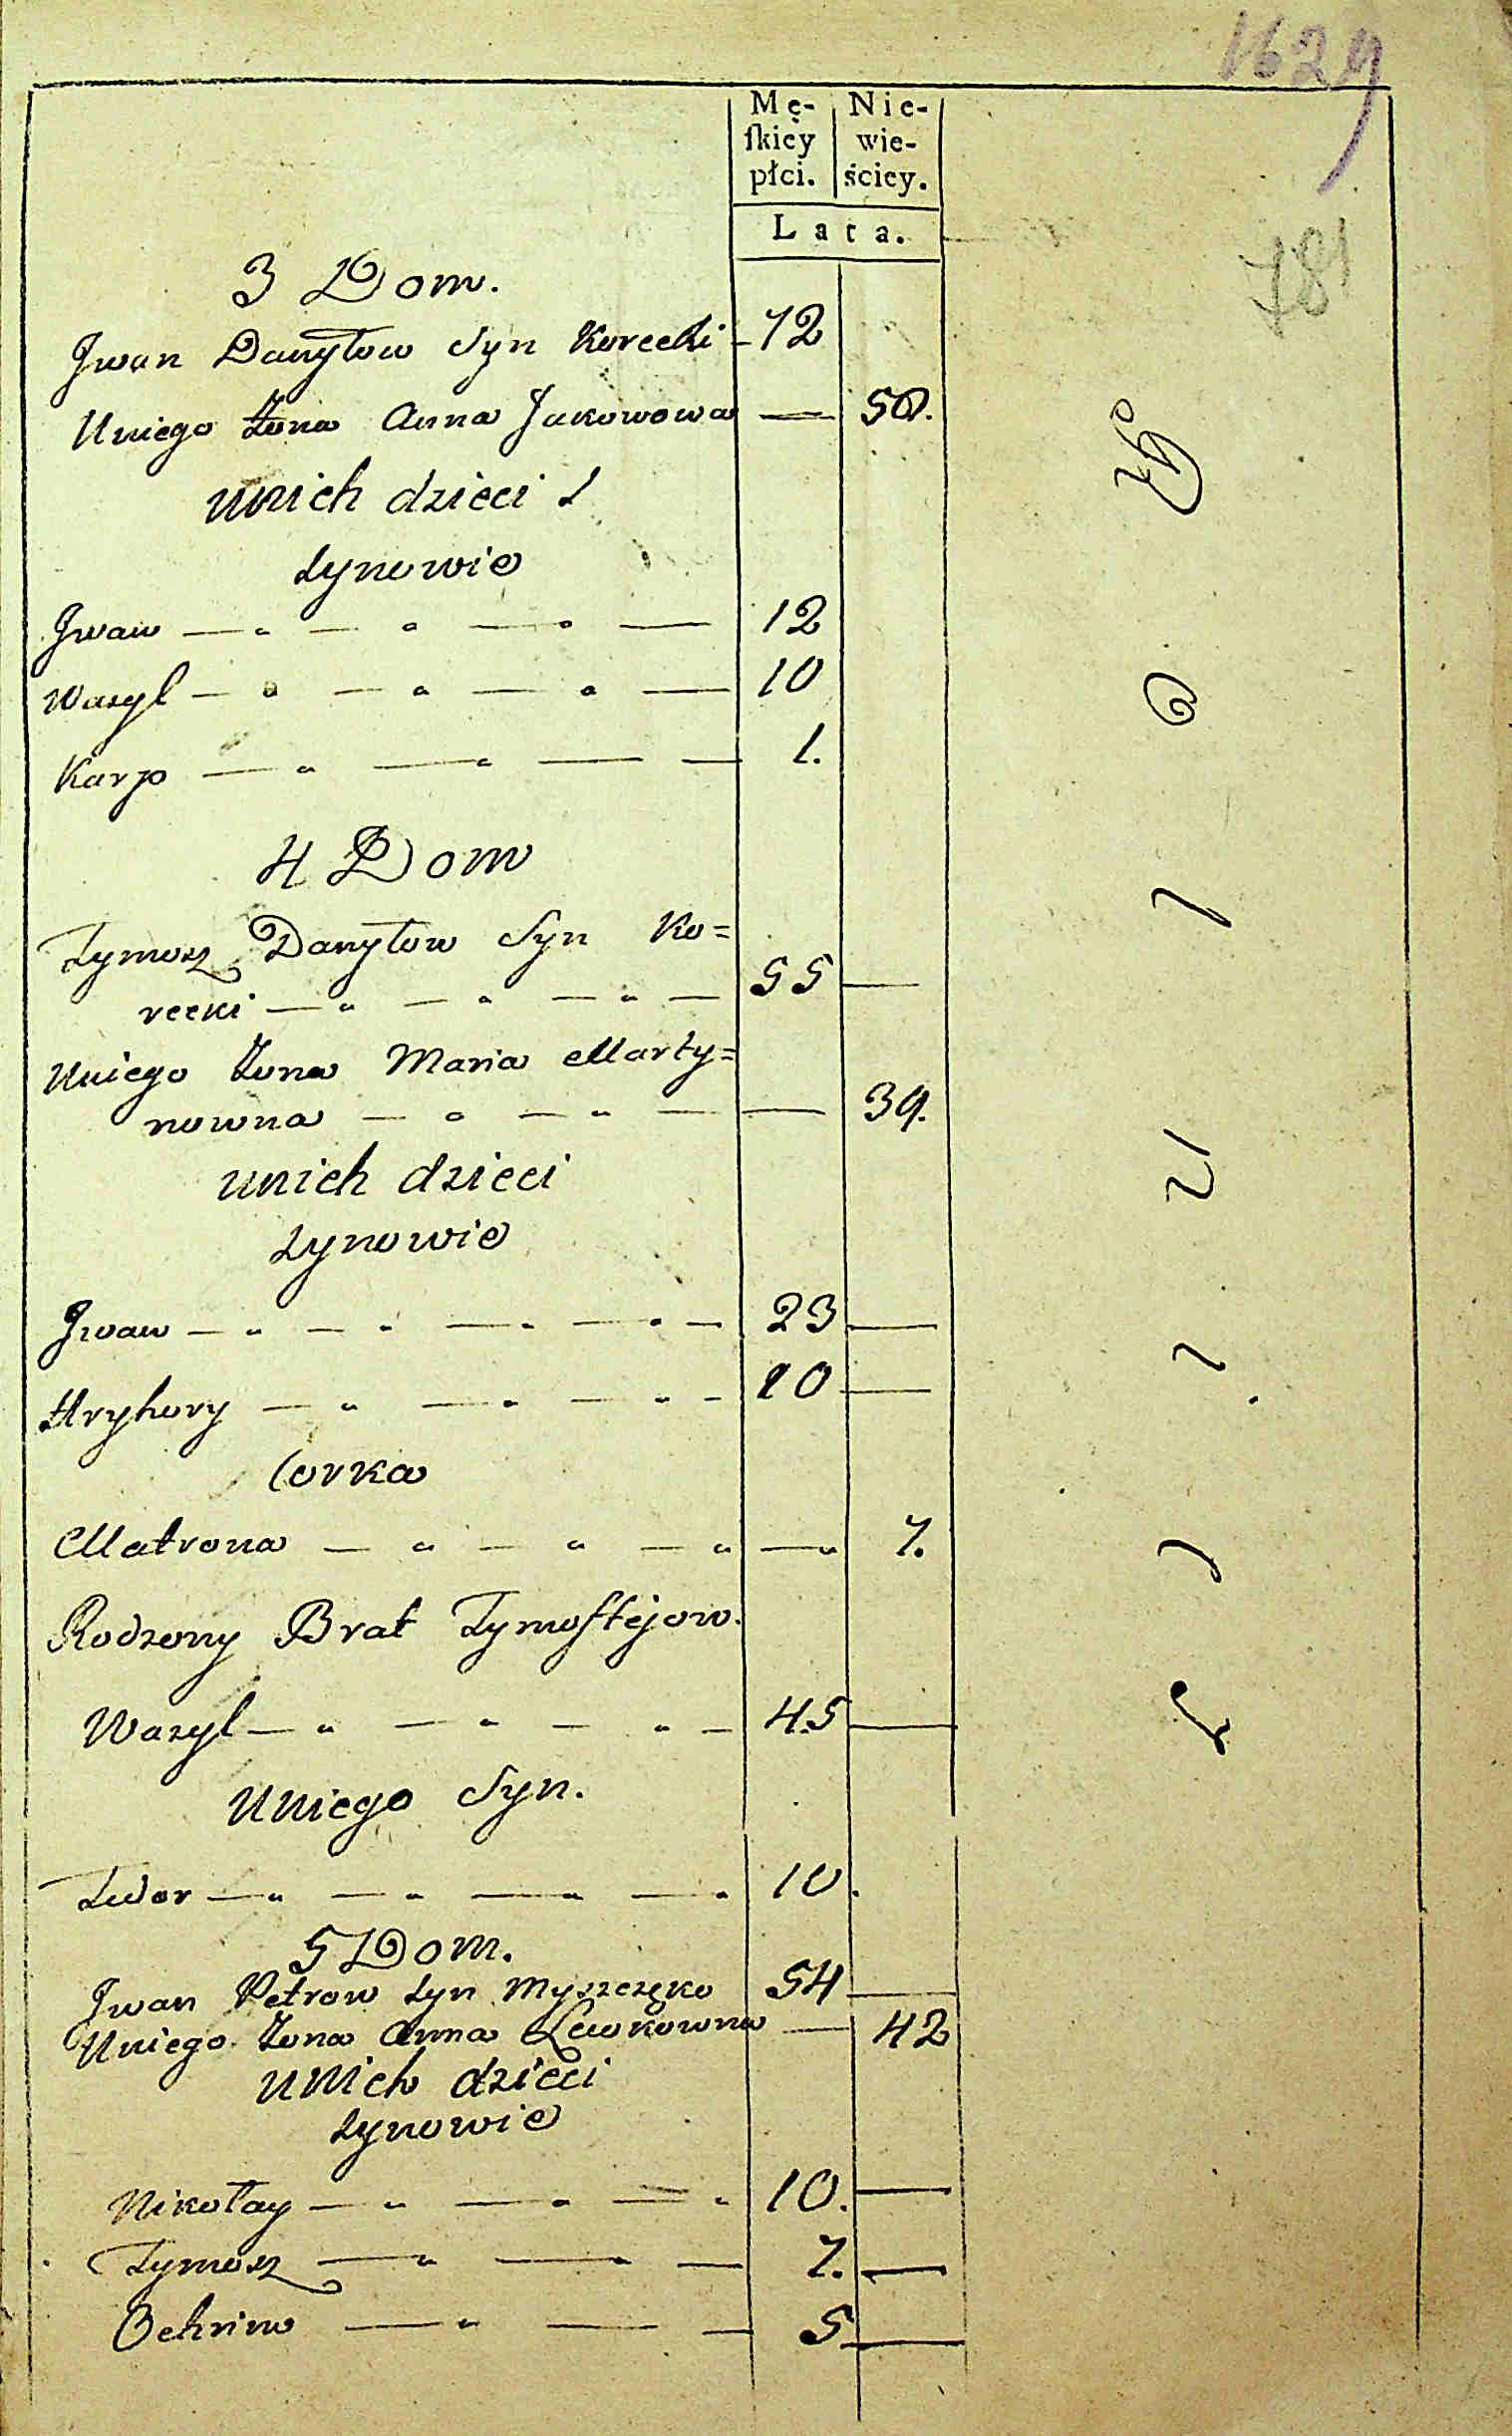 1629
Mę-
ſkiey
płci.
Nie-
wie-
ściey.
Lata.
781
3 Dom.
Jwan Danyłow Syn Korecki - 72
Uniego Żona Anna Jakowowa — 50.
unich dzieci
synowie
Jwan — " — " — " — 12
Wasyl — " — " — " — 10
Karpo — " — " — — 1.
4 Dom
Tymosz Danyłow Syn Ko=
recki — " — " — " — 55 —
Uniego Żona Maria Marty=
nowna — " — " — — 39.
unich dzieci
synowie
Jwan — " — " — " — " — 23 —
Hryhory — " — " — " - 10 —
Corka
Matrona — " — " — " —" 7.
Rodzony Brat Tymoſtejow.
Wasyl — " — " — " — 45 —
Uniego Syn.
— " — " — " — " 10.
5 Dom.
Jwan Petrow syn Myszczęko 54 —
Uniego Żona Anna Lewkowna — 42
unich dzieci
synowie
Nikołay — " — " — " 10. —
Tymosz — " — " — 7. —
Ochrim — " — — 5 —